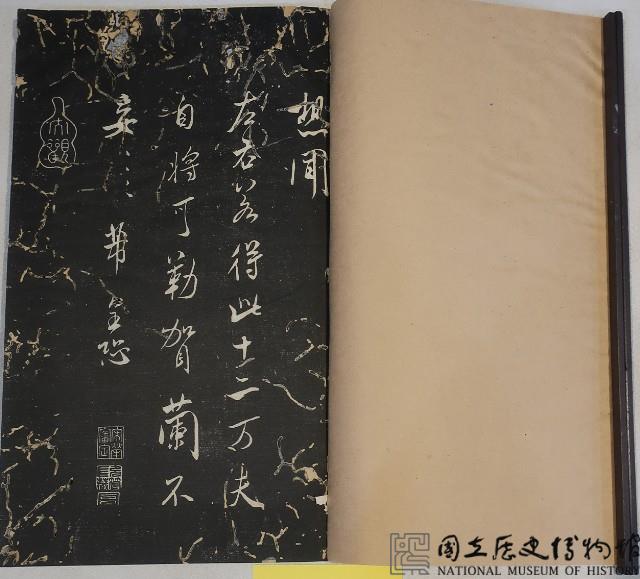 想聞
左右若得此十二万夫
自將可勒賀蘭不
芾皇恐
國立歷史博物館
NATIONAL MUSEUM OF HISTORY